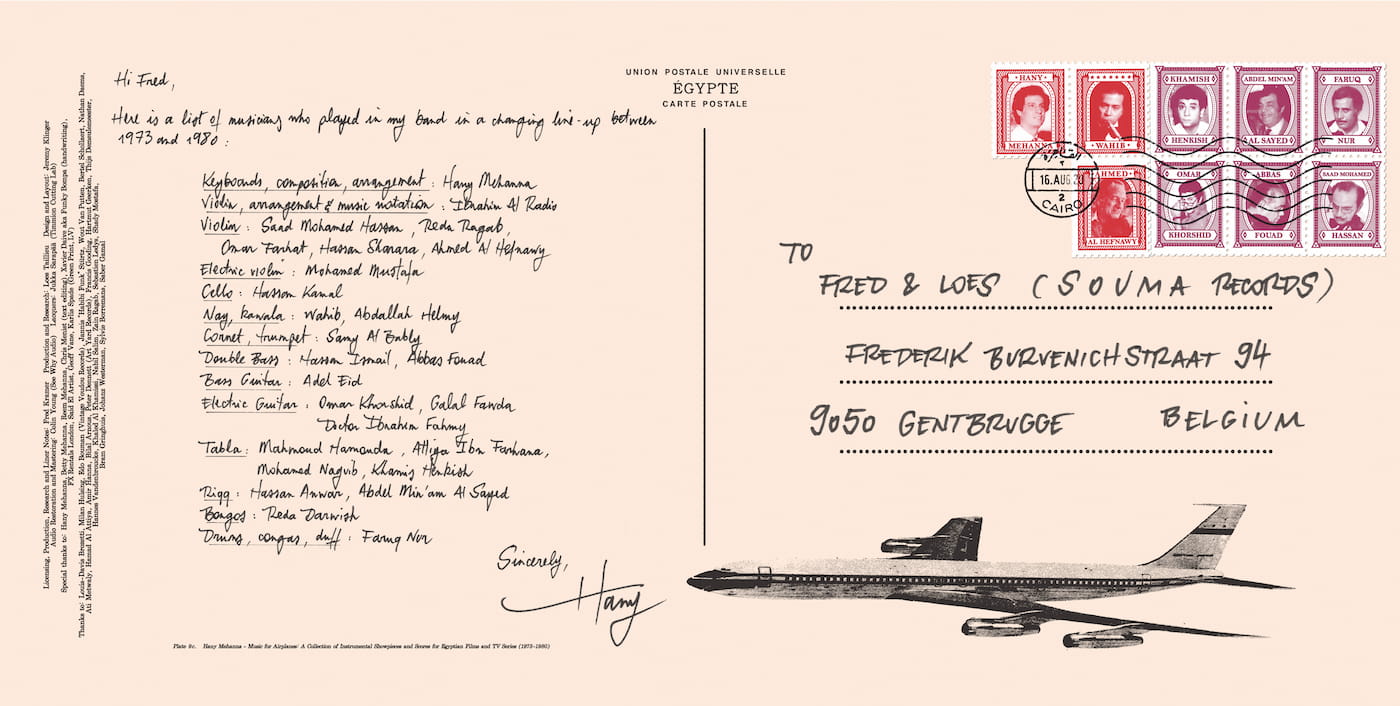 Hi Fred,
Here is a list of musicians who played in my band in a changing line-up between
1973 and 1980:
Keyboards, composition, arrangement: Hany Mehanna
Violin, arrangement & music notation: Ibrahim Al Radio
Violin: Saad Mohamed Hassan, Reda Ragab,
Omar Farhat, Hassan Sharara, Ahmed Al Hefnawy
Electric violin: Mohamed Mustafa
Cello: Hassan Kamal
Nay, kawala: Wahib, Abdallah Helmy
Cornet, trumpet: Samy Al Bably
Double Bass: Hassan Ismail, Abbas Fouad
Bass Guitar: Adel Eid
Electric Guitar: Omar Khorshid, Galal Fawda
Doctor Ibrahim Fahmy
Tabla: Mahmoud Hamouda, Attiya Ibn Farhana,
Mohamed Naguib, Khamis Henkish
Riqq: Hassan Anwar, Abdel Min'am Al Sayed
Bongos: Reda Darwish
Drums, congas, duff: Faruq Nur
Sincerely,
Hany
Plate 9c. Hany Mehanna - Music for Airplanes: A Collection of Instrumental Showpieces and Scores for Egyptian Films and TV Series (1973-1980)
Licensing, Production, Research and Liner Notes: Fred Kramer Production and Research: Loes Taillieu Design and Layout: Jeremy Klinger
Audio Restoration and Mastering: Colin Young (See Why Audio) Lacquers: Jukka Sarapää (Timmion Cutting Lab)
Special thanks to: Hany Mehanna, Betty Mehanna, Reem Mehanna, Chris Menist (text editing), Xavier Daive aka Funky Bompa (handwriting),
FX Rentals London, Said El Artist, Geoff Vane, Karlis Spade (Green Print, LV)
Thanks to: Louis-Davis Brunetti, Milan Hulsing, Edo Bouman (Vintage Voudou Records), Jannis "Habibi Funk" Stürtz, Wout Van Putten, Bertel Schollaert, Nathan Dams,
Ati Metwaly, Hamad Al Attiya, Amir Hanna, Bilal Arnous, Peter Dennett (Art Yard Records), Francis Gooding, Hartmut Geerken, Thijs Demeulemeester,
Hannes Vandenbroucke, Khaled Al Khamissi, Nahil Selim, Zein Ragab, Sebastien Ledys, Shady Mostafa,
Bram Gringhuis, Johanz Westerman, Sylvie Borremans, Saber Gamal
UNION POSTALE UNIVERSELLE
ÉGYPTE
CARTE POSTALE
HANY
MEHANNA
WAHIB
KHAMISH
HENKISH
ABDEL MIN'AM
AL SAYED
FARUQ
NUR
AHMED
AL HEFNAWY
OMAR
KHORSHID
ABBAS
FOUAD
SAAD MOHAMED
HASSAN
القاهرة
16.AUG
2
CAIRO
TO
FRED & LOES (SOUMA RECORDS)
FREDERIK BURVENICHSTRAAT 94
9050 GENTBRUGGE BELGIUM